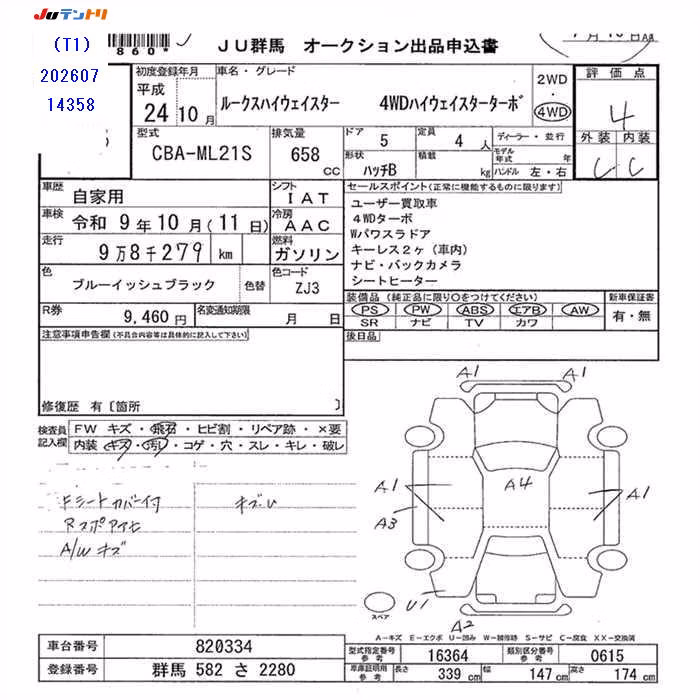 JUテントリ
(T1)
202607
14358
860*
JU群馬 オークション出品申込書
初度登録年月
平成
24 10月
車名・グレード
ルークスハイウェイスター 4WDハイウェイスターターボ
2WD
・
4WD
評価点
4
外装 内装
C C
型式
CBA-ML21S
排気量
658 CC
ドア 5
定員 4 人
形状 ハッチB
積載 kg
ディーラー・並行
モデル年式 年
ハンドル 左・右
車歴 自家用
シフト IAT
車検 令和 9年10月(11日)
冷房 AAC
走行 9万8千279 km
燃料 ガソリン
色 ブルーイッシュブラック 色替
色コード ZJ3
R券 9,460円
名変通知期限 月 日
セールスポイント(正常に機能するものに限ります)
ユーザー買取車
4WDターボ
Wパワスラドア
キーレス2ヶ(車内)
ナビ・バックカメラ
シートヒーター
装備品(純正品に限り○をつけてください)
PS PW ABS エアB AW
SR ナビ TV カワ
新車保証書
有・無
注意事項申告欄(不具合内容等は具体的に記入して下さい)
後日品
修復歴 有〔箇所 〕
検査員記入欄
FW キズ・飛石・ヒビ割・リペア跡・×要
内装 キズ・汚・コゲ・穴・スレ・キレ・破レ
Fシートカバー付
A/W キズ
A1 A1
A1 A4 A1
A3
U1
A2
スペア
A-キズ E-エクボ U-凹み W-補修跡 S-サビ C-腐食 XX-交換済
車台番号 820334
登録番号 群馬 582 さ 2280
型式指定番号 参考 16364
類別区分番号 参考 0615
車庫証明用 参考 長さ 339 cm 幅 147 cm 高さ 174 cm